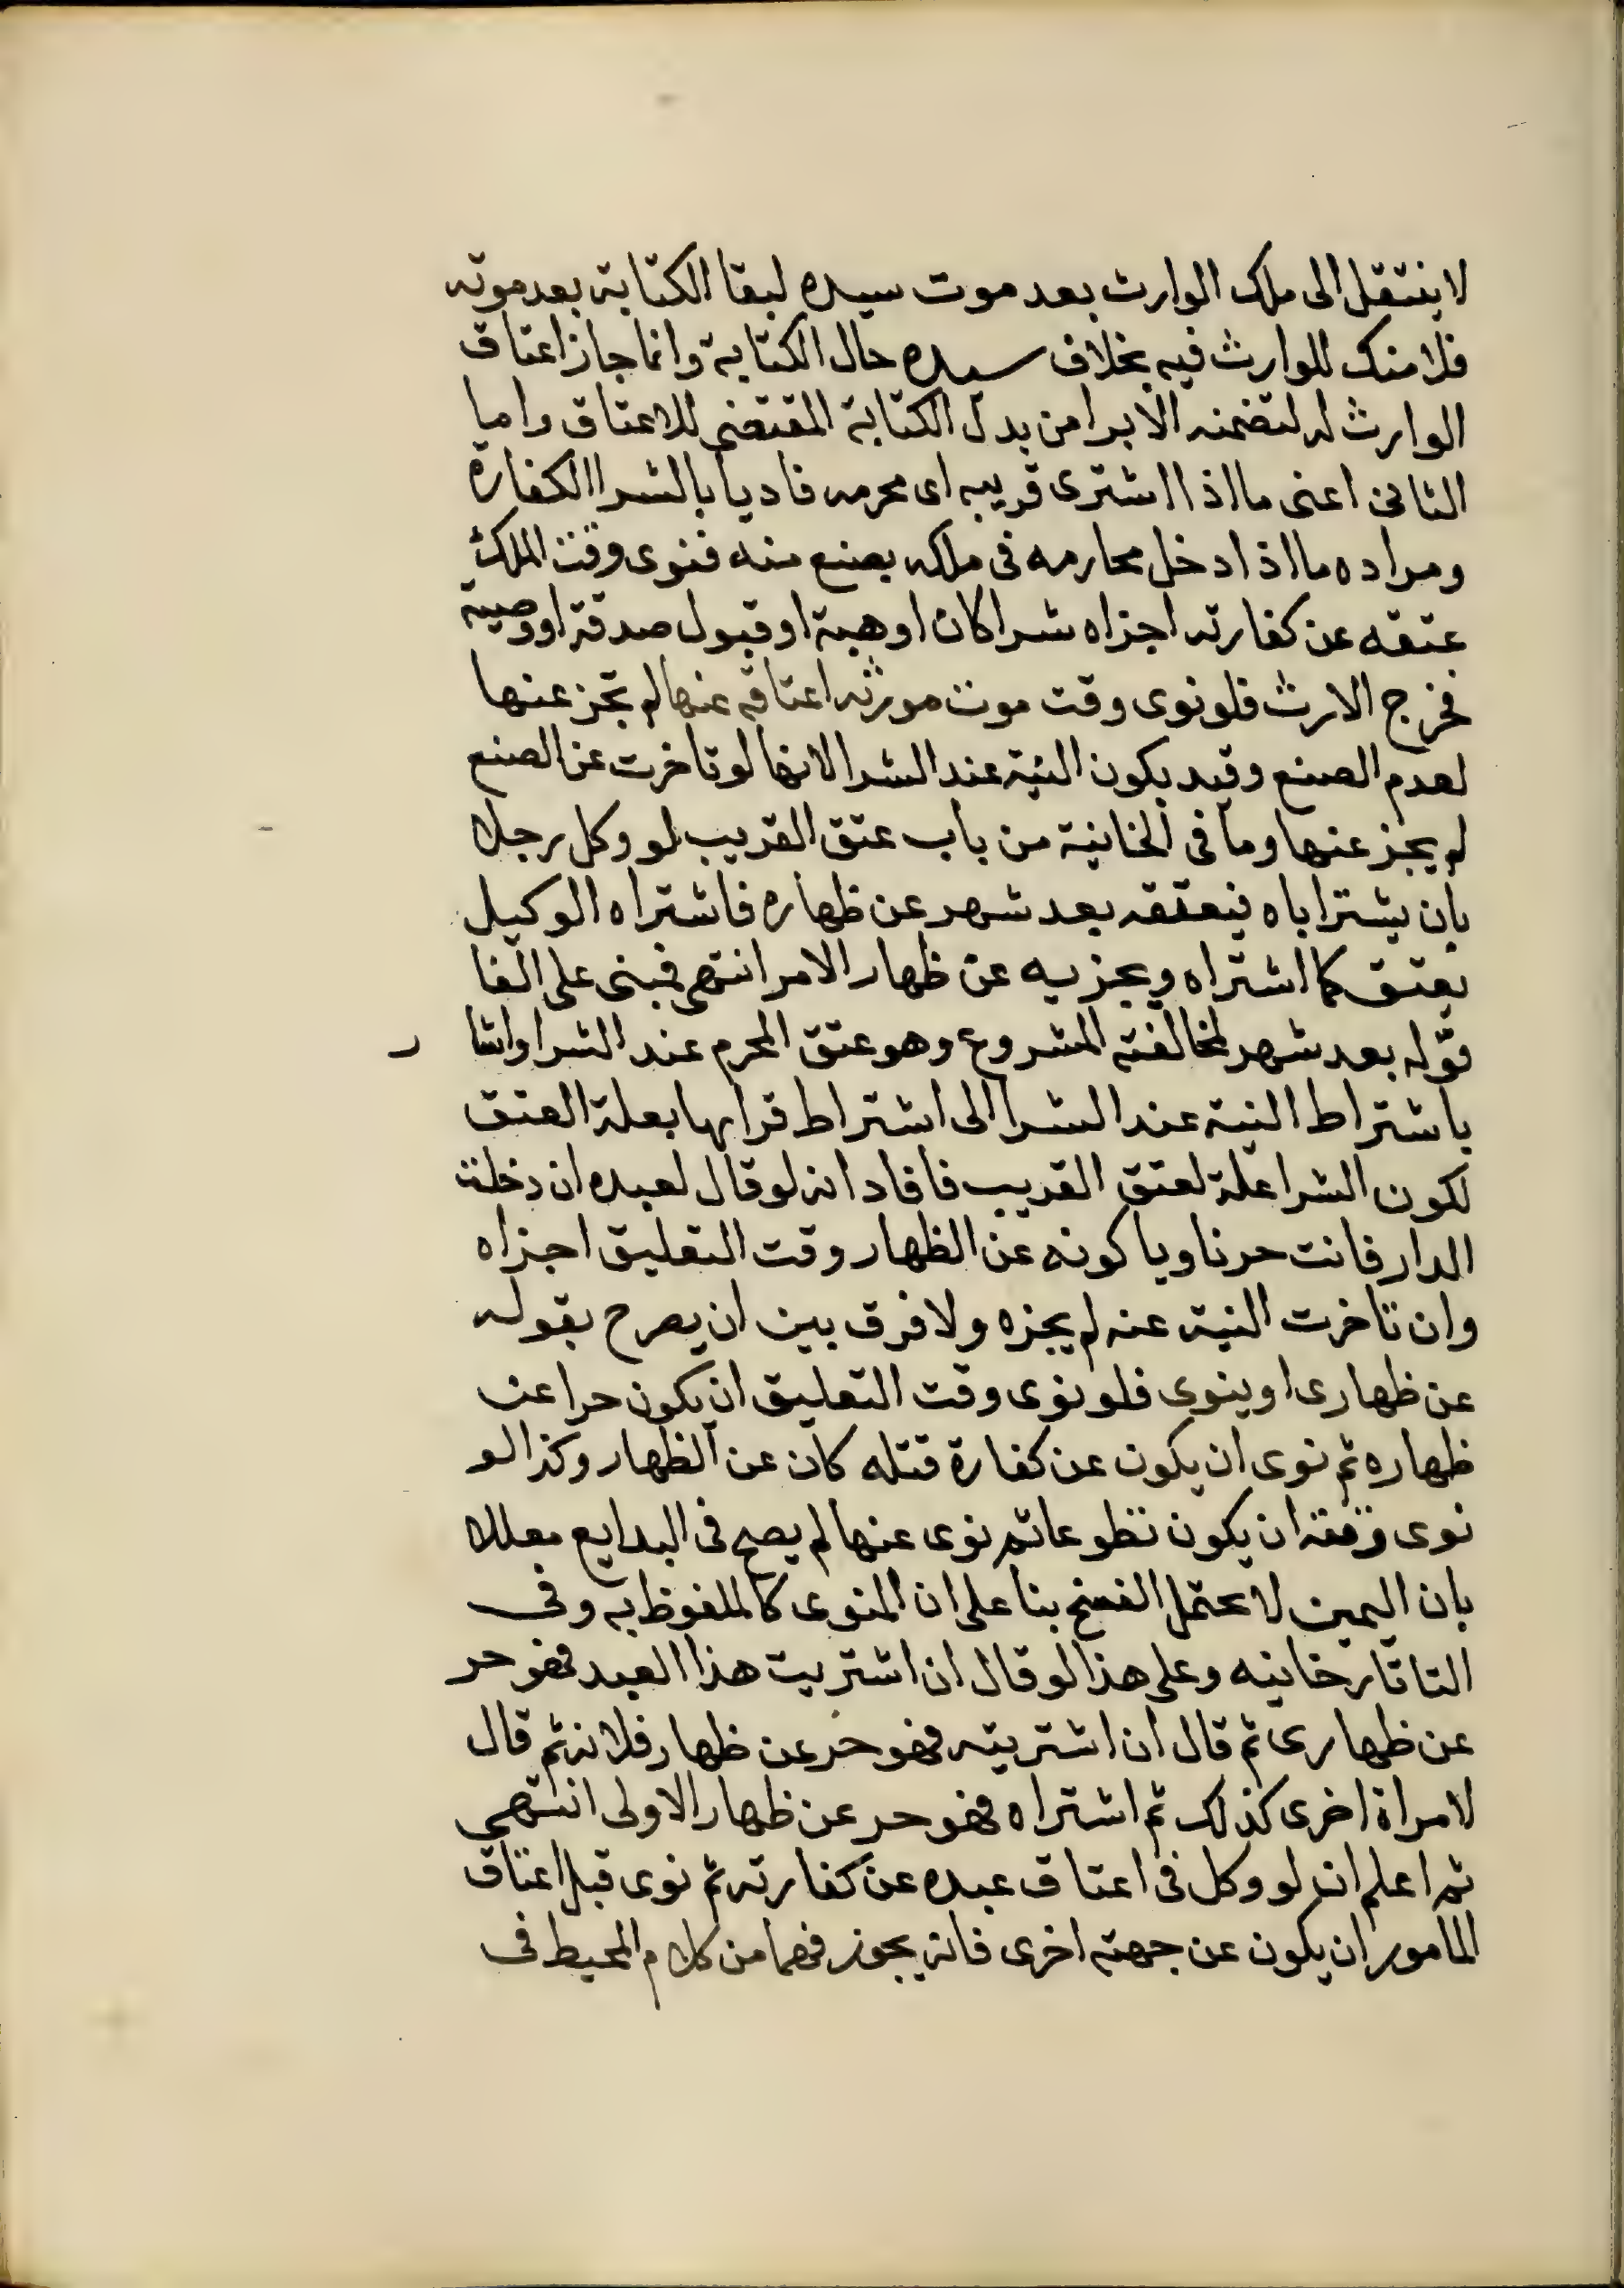 لا ينتقل الى ملك الوارث بعد موت سيده لبقا الكتابة بعد موته
فلا منك للوارث فيه بخلاف سيده حال الكتابة وانما جاز اعتاق
الوارث له لتضمنه الابرا من بدل الكتابة المقتضى للاعتاق واما
الثانى اعنى ما اذا اشترى قريبه اى محرمه فاديا بالشرا الكفارة
ومراده ما اذا دخل محارمه فى ملكه بصنع منه فنوى وقت الملك
عتقه عن كفارته اجزاه شرا كان او هبة او قبول صدقة او وصية
فخرج الارث فلو نوى وقت موت مورثه اعتاقه عنها لم تجز عنها
لعدم الصنع وقيد بكون النية عند الشرا لانها لو تاخرت عن الصنع
لم يجز عنها وما فى الخانية من باب عتق القريب لو وكل رجلا
بان يشترا باه فيعتقه بعد شهر عن ظهاره فاشتراه الوكيل
يعتق كما اشتراه ويجزيه عن ظهار الامر انتهى فمبنى على الغا
قوله بعد شهر لمخالفته المشروع وهو عتق المحرم عند الشرا واشا ر
باشتراط النية عند الشرا الى اشتراط قرانها بعلة العتق
لكون الشرا علة لعتق القريب فافاد انه لو قال لعبده ان دخلت
الدار فانت حر ناويا كونه عن الظهار وقت التعليق اجزاه
وان تاخرت النية عنه لم يجزه ولا فرق بين ان يصرح بقوله
عن ظهارى او ينوى فلو نوى وقت التعليق ان يكون حرا عن
ظهاره ثم نوى ان يكون عن كفارة قتله كان عن الظهار وكذا لو
نوى وقته ان يكون تطوعا ثم نوى عنها لم يصح فى البدايع معللا
بان اليمين لا يحتمل الفسخ بنا على ان المنوى كالملفوظ به وفى
التاتارخانيه وعلى هذا لو قال ان اشتريت هذا العبد فهو حر
عن ظهارى ثم قال ان اشتريته فهو حر عن ظهار فلانة ثم قال
لامراة اخرى كذلك ثم اشتراه فهو حر عن ظهار الاولى انتهى
ثم اعلم انه لو وكل فى اعتاق عبده عن كفارته ثم نوى قبل اعتاق
المامور ان يكون عن جهته اخرى فانه يجوز فهما من كلام المحيط فى